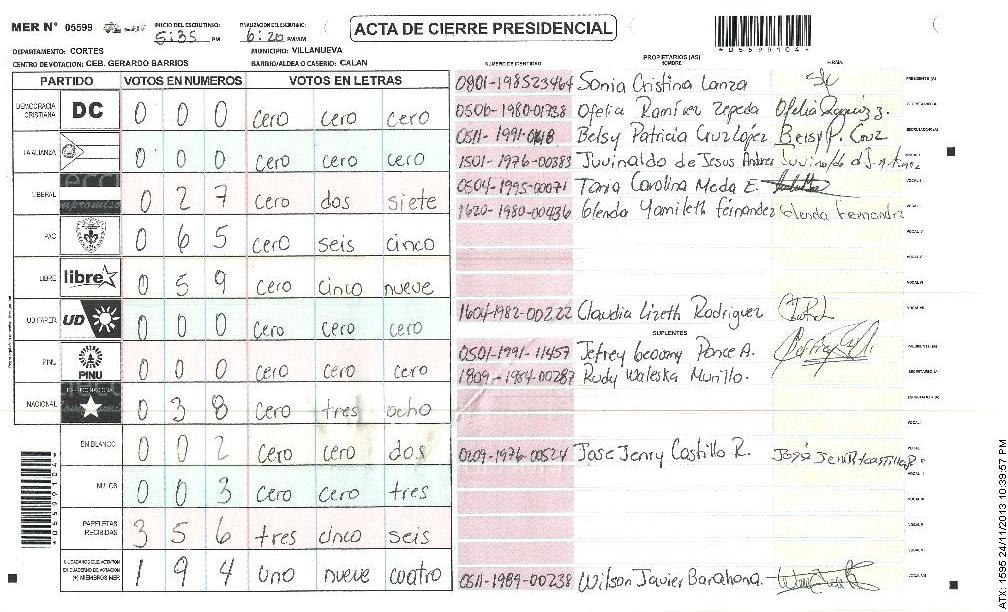 MER N° 05599 INICIO DEL ESCRUTINIO: 5:35 PM FINALIZACION DEL ESCRUTINIO: 6:20 PM/AM ACTA DE CIERRE PRESIDENCIAL *05599104*
DEPARTAMENTO: CORTES MUNICIPIO: VILLANUEVA
CENTRO DE VOTACION: CEB. GERARDO BARRIOS BARRIO/ALDEA O CASERIO: CALAN
PARTIDO VOTOS EN NUMEROS VOTOS EN LETRAS
DEMOCRACIA CRISTIANA DC 0 0 0 cero cero cero
LA ALIANZA 0 0 0 cero cero cero
LIBERAL 0 2 7 cero dos siete
PAC 0 6 5 cero seis cinco
LIBRE libre 0 5 9 cero cinco nueve
UD FAPER UD 0 0 0 cero cero cero
PINU PINU 0 0 0 cero cero cero
NACIONAL 0 3 8 cero tres ocho
EN BLANCO 0 0 2 cero cero dos
NULOS 0 0 3 cero cero tres
PAPELETAS RECIBIDAS 3 5 6 tres cinco seis
CIUDADANOS QUE VOTARON EN CUADERNO DE VOTACION (+) MIEMBROS MER 1 9 4 uno nueve cuatro
*05599104*
NUMERO DE IDENTIDAD PROPIETARIOS (AS) NOMBRE FIRMA
0801-198523464 Sonia Cristina Lanza PRESIDENTE (A)
0506-1980-01738 Ofelia Ramírez Zepeda SECRETARIO (A)
Betsy Patricia Cruz Betsy P. Cruz ESCRUTADOR (A)
1501-1976-00383 Juvinaldo de Jesus VOCAL I
0504-1995-00071 Tania Carolina Meda E. VOCAL II
1620-1980-00436 Glenda Yamileth férnandez Glenda Fernandez
VOCAL IV
VOCAL V
VOCAL VI
1604-1982-00222 Claudia Lizeth Rodriguez VOCAL VII
SUPLENTES
0501-1991-11457 Jefrey Geovany Ponce A. PRESIDENTE (A)
1809-1984-00287 Rudy Waleska Murillo. SECRETARIO (A)
ESCRUTADOR (A)
VOCAL I
0209-1976-00524 Jose Jenry Castillo R.
VOCAL III
VOCAL IV
VOCAL V
VOCAL VI
0511-1989-00238 Wilson Javier Barahona. VOCAL VII
ATX: 1595 24/11/2013 10:39:57 PM